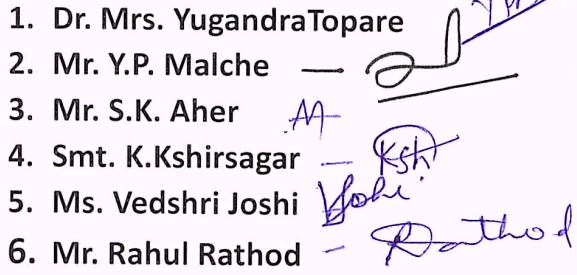 1. Dr. Mrs. YugandraTopare
2. Mr. Y.P. Malche —
3. Mr. S.K. Aher
4. Smt. K.Kshirsagar – Ksh
5. Ms. Vedshri Joshi VJoshi.
6. Mr. Rahul Rathod – Rathod